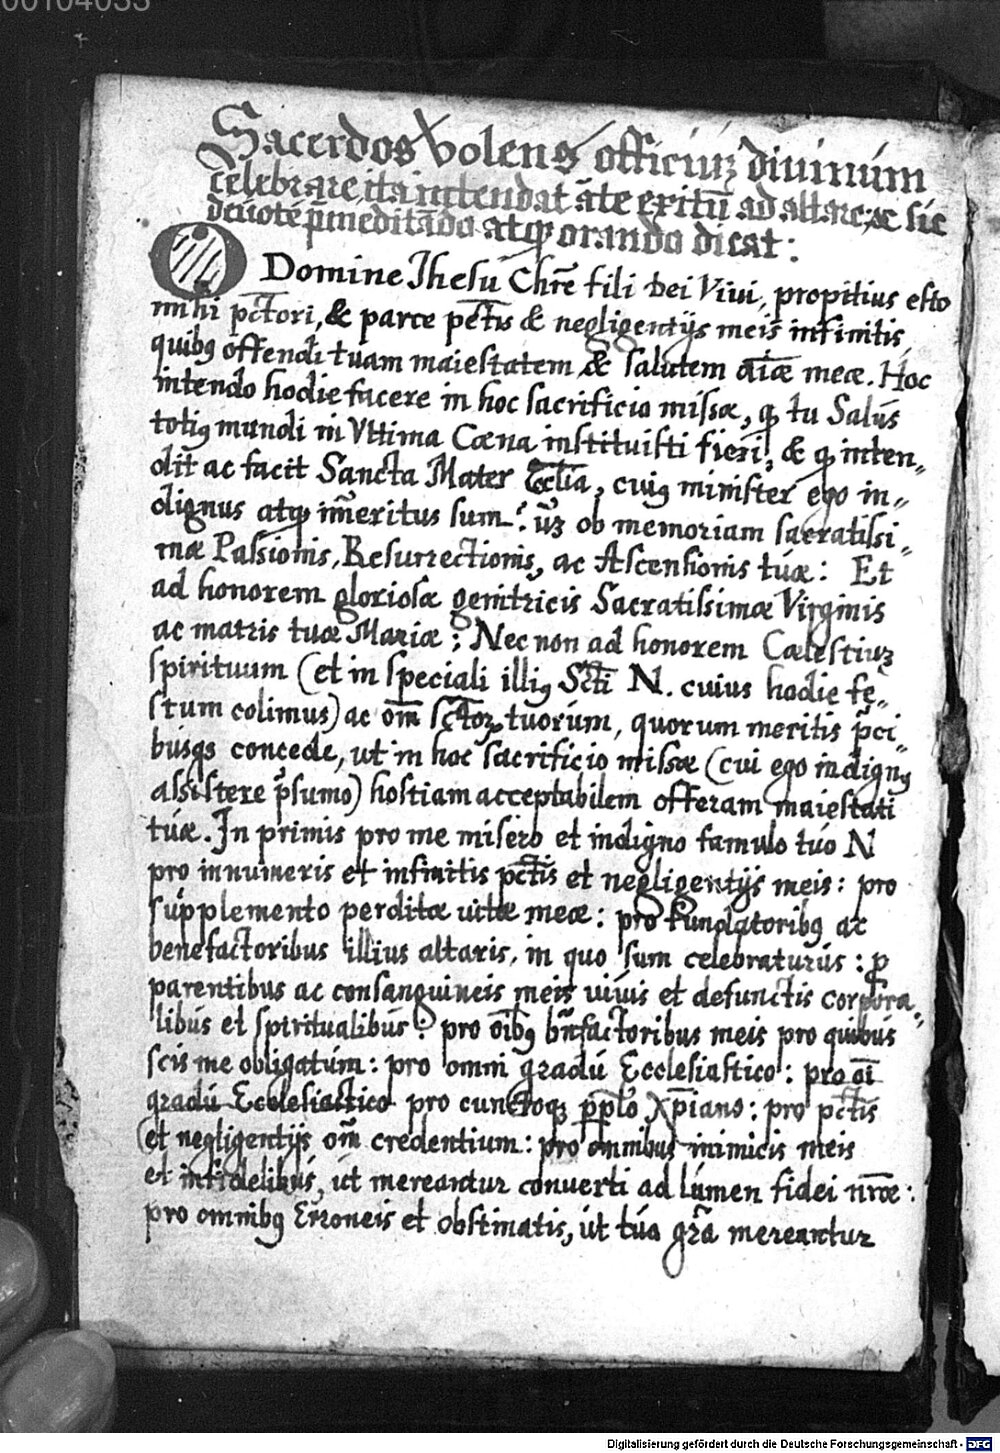 00104033
Sacerdos volens officiuȝ diuinum
celebrare ita intendat āte exitū ad altare, ac sic
deuote p̄meditādo atqȝ orando dicat:
O Domine Jhesu Chr̄e fili Dei Viui, propitius esto
mihi pc̄tori, & parce pc̄tis & negligentijs meis infinitis,
quibꝰ offendi tuam maiestatem & salutem aīæ meæ. Hoc
intendo hodie facere in hoc sacrificio missæ, qꝫ tu Salus
totiꝰ mundi in Vltima Cœna instituisti fieri, & qꝫ inten„
dit ac facit Sancta Mater Ecclīa, cuiꝰ minister ego in„
dignus atqꝫ im̄eritus sum: ūȝ ob memoriam sacratissi„
mæ Passionis, Resurrectionis, ac Ascensionis tuæ: Et
ad honorem gloriosæ genitricis Sacratissimæ Virginis
ac matris tuæ Mariæ; Nec non ad honorem Cælestiuȝ
spirituum (et in speciali illiꝰ Sc̄ti N. cuius hodie fe„
stum colimus) ac om̄ sc̄toꝝ tuorum, quorum meritis p̄ci„
busqꝫ concede, ut in hoc sacrificio missæ (cui ego indignꝰ
assistere p̄sumo) hostiam acceptabilem offeram maiestati
tuæ. In primis pro me misero et indigno famulo tuo N
pro innumeris et infinitis pc̄tis et negligentijs meis: pro
supplemento perditæ uitæ meæ: pro fundatoribꝰ ac
benefactoribus illius altaris, in quo sum celebraturus: ꝓ
parentibus ac consanguineis meis uiuis et defunctis corpora„
libus et spiritualibus: pro oībꝰ bn̄factoribus meis pro quibus
scis me obligatum: pro omni gradu Ecclesiastico: pro oī
gradu Ecclesiastico pro cunctoqꝫ pp̄lo Xp̄iano: pro pc̄tis
(et negligentijs om̄ credentium: pro omnibus inimicis meis
et infidelibus, ut mereantur conuerti ad lumen fidei nr̄æ:
pro omnibꝰ Erroneis et obstinatis, ut tua gr̄a mereantur
Digitalisierung gefördert durch die Deutsche Forschungsgemeinschaft - DFG